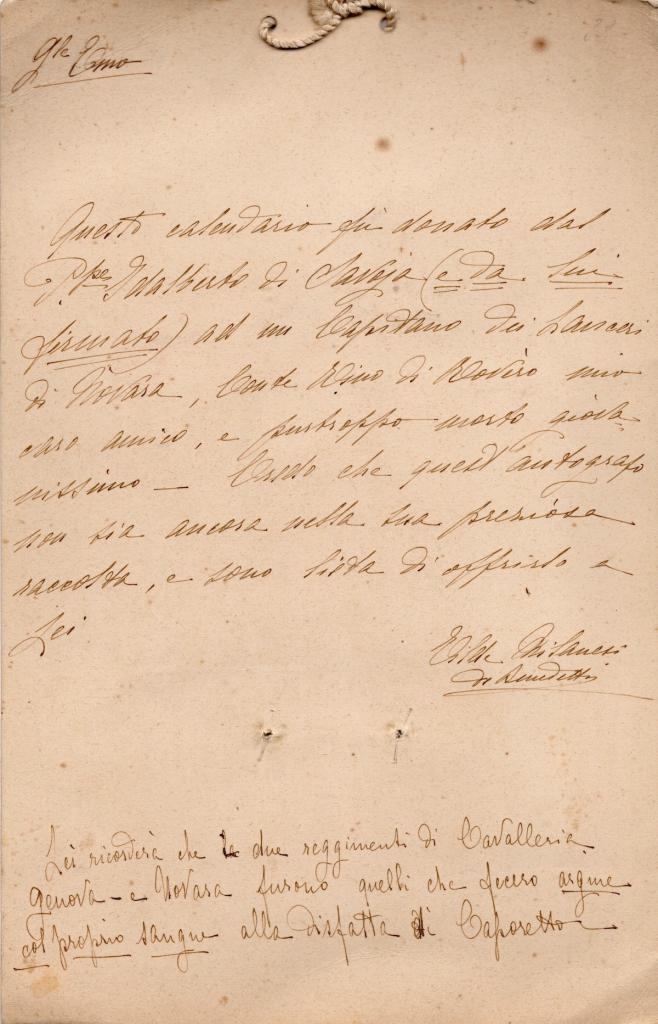 Gle Emo
Questo calendario fu donato dal
P.pe Adalberto di Savoja (e da lui
firmato) ad un Capitano dei Lancieri
di Novara, Conte Nino di Rovèro mio
caro amico, e purtroppo morto giova-
nissimo — Credo che quest'autografo
non sia ancora nella sua preziosa
raccolta, e sono lieta di offrirlo a
Lei
Milanesi
De Benedetti
Lei ricorderà che le due reggimenti di Cavalleria
Genova - e Novara furono quelli che fecero argine
col proprio sangue alla disfatta di Caporetto -